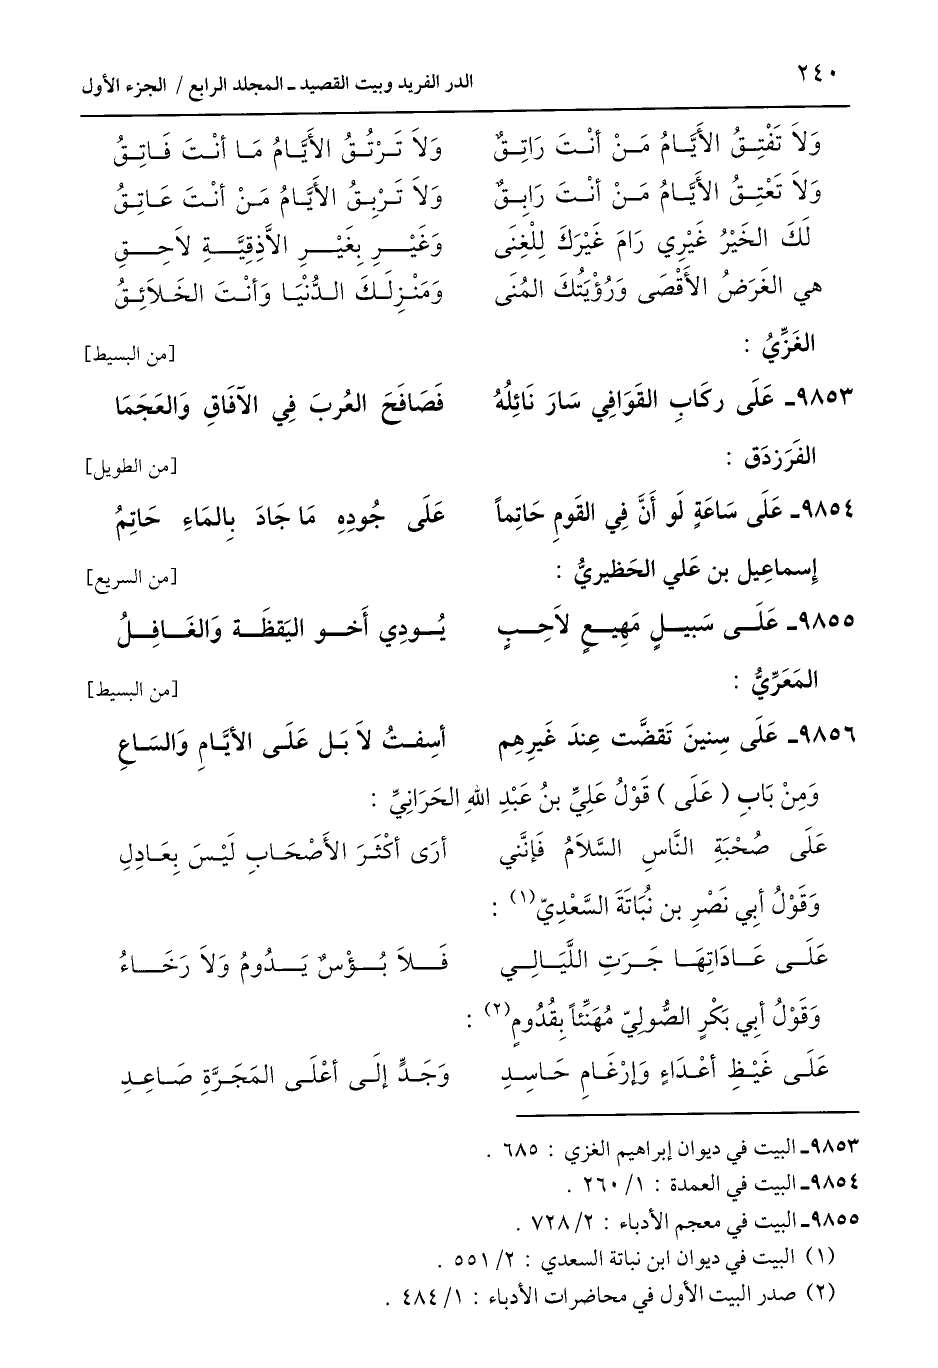 ٢٤٠ الدر الفريد وبيت القصيد ـ المجلد الرابع / الجزء الأول
وَلاَ تَفْتِقُ الأَيَّامُ مَنْ أنْتَ رَاتِقٌ وَلاَ تَرْتُقُ الأَيَّامُ مَا أنْتَ فَاتِقُ
وَلاَ تَعْتِقُ الأَيَّامُ مَنْ أنْتَ رَابِقٌ وَلاَ تَرْبِقُ الأَيَّامُ مَنْ أنْتَ عَاتِقُ
لَكَ الخَيْرُ غَيْرِي رَامَ غَيْرَكَ لِلْغِنَى وَغَيْرِ بِغَيْرِ الأَذِقيَّةِ لاَحِقِ
هي الغَرَضُ الأَقْصَى وَرُؤيَتُكَ المُنَى وَمَنْزِلَكَ الدُّنْيَا وَأنْتَ الخَلاَئِقُ
الغَزِّيُّ : [من البسيط]
٩٨٥٣ـ عَلَى ركَابِ القَوَافِي سَارَ نَائِلُهُ فَصَافَحَ العُربَ فِي الآفَاقِ وَالعَجَمَا
الفَرَزدَق : [من الطويل]
٩٨٥٤ـ عَلَى سَاعَةٍ لَو أنَّ فِي القَومِ حَاتِماً عَلَى جُودِهِ مَا جَادَ بِالمَاءِ حَاتِمُ
إسماعِيل بن عَلي الحَظيريُّ : [من السريع]
٩٨٥٥ـ عَلَى سَبيلٍ مَهِيعٍ لاَحِبٍ يُودِي أَخو اليَقظَة وَالغَافِلُ
المَعَرِّيُّ : [من البسيط]
٩٨٥٦ـ عَلَى سِنينَ تَقضَّت عِندَ غَيرِهِم أسِفتُ لاَ بَل عَلَى الأيَّامِ وَالسَاعِ
وَمِنْ بَابِ ( عَلَى ) قَوْلُ عَلِيِّ بنُ عَبْدِ اللهِ الحَرَانِيِّ :
عَلَى صُحْبَةِ النَّاسِ السَّلاَمُ فَإنَّني أرَى أكْثَرَ الأَصْحَابِ لَيْسَ بِعَادِلِ
وَقَوْلُ أبِي نَصْرِ بن نُبَاتَةَ السَّعْدِيّ(١) :
عَلَى عَادَاتِهَا جَرَتِ اللَّيَالِي فَلاَ بُؤْسٌ يَدُومُ وَلاَ رَخَاءُ
وَقَوْلُ أبِي بَكْرٍ الصُّولِيّ مُهَنِّئاً بِقُدُومٍ(٢) :
عَلَى غَيْظِ أعْدَاءٍ وَإرْغَامِ حَاسِدِ وَجَدٍّ إلَى أعْلَى المَجَرَّةِ صَاعِدِ
٩٨٥٣ـ البيت في ديوان إبراهيم الغزي : ٦٨٥ .
٩٨٥٤ـ البيت في العمدة : ١/ ٢٦٠ .
٩٨٥٥ـ البيت في معجم الأدباء : ٢/ ٧٢٨ .
(١) البيت في ديوان ابن نباتة السعدي : ٢/ ٥٥١ .
(٢) صدر البيت الأول في محاضرات الأدباء : ١/ ٤٨٤ .